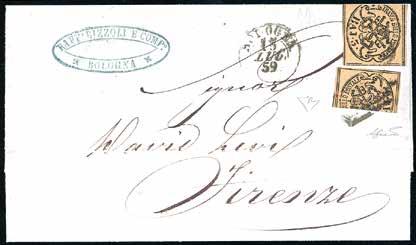 RAFF. RIZZOLI E COMP.
BOLOGNA
BOLOGNA
15
LUG.
59
Signor
David Levi
Firenze